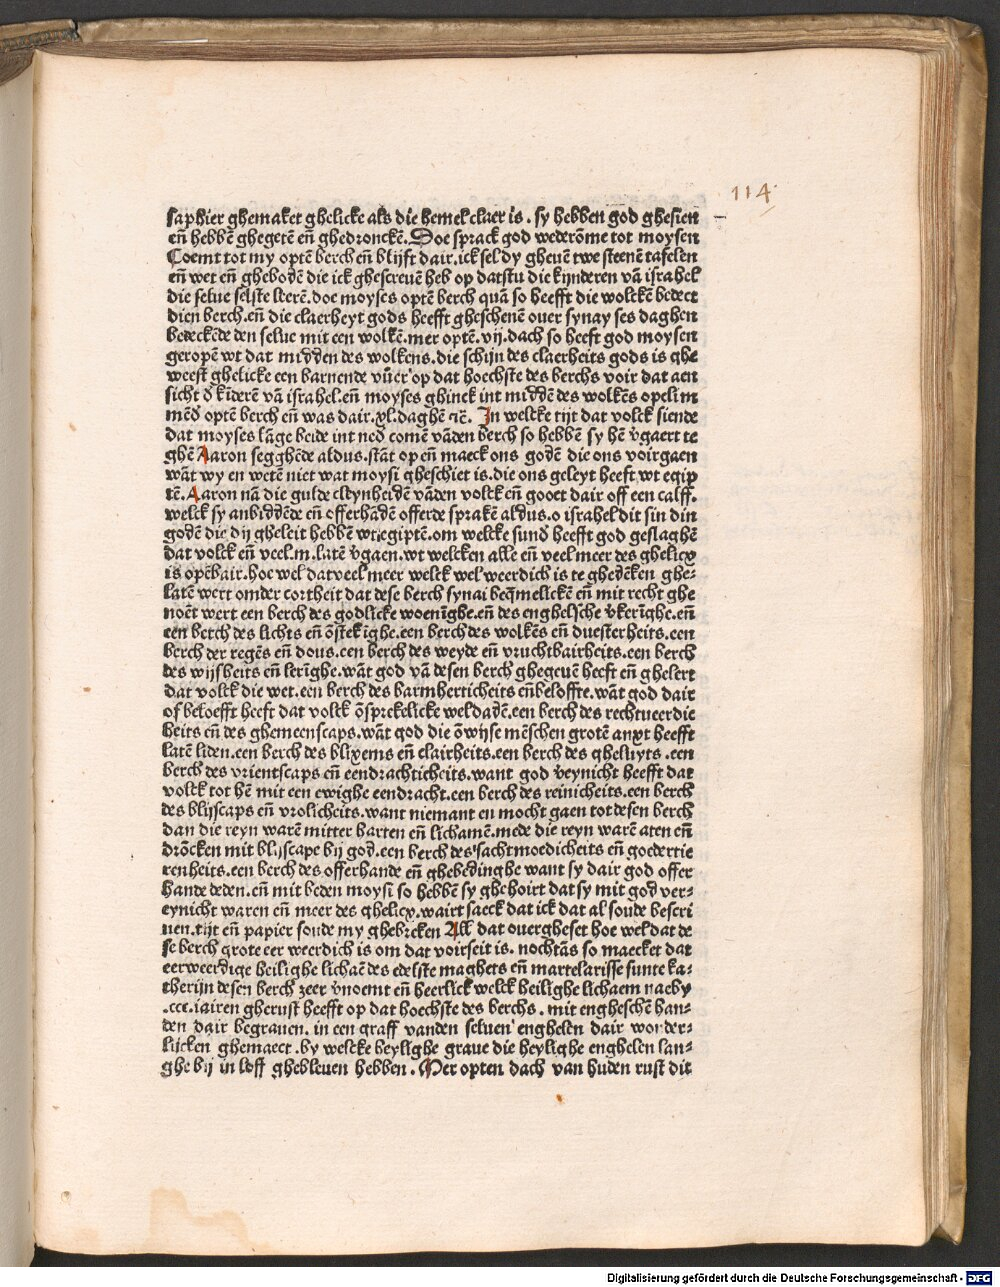 114
saphier ghemaket ghelicke als die hemel claer is . sy hebben god ghesien
eñ hebbē ghegetē eñ ghedronckē. Doe sprack god wederōme tot moysen
Coemt tot my optē berch eñ blijft dair. ick sel dy gheuē twe steenē tafelen
eñ wet eñ ghebodē die ick ghescreuē heb op datstu die kijnderen vā israhel
die selue selste lerē. doe moyses optē berch quā so heefft die wolckē bedect
dien berch. eñ die claerheyt gods heefft gheschenē ouer synay ses daghen
bedeckēde den selue mit een wolkē. mer optē. vij. dach so heeft god moysen
geropē wt dat midden des wolkens. die schijn des claerheits gods is ghe
weest ghelicke een barnende vūer op dat hoechste des berchs voir dat aen
sicht d̄ kīderē vā israhel. eñ moyses ghinck int middē des wolkēs opclim
mēd̄ optē berch eñ was dair. xl. daghē ⁊c̄. In welcke tijt dat volck siende
dat moyses lāge beide int ned̄ comē vādēn berch so hebbē sy hē v̄gaert te
ghē Aaron segghēde aldus. stāt op eñ maeck ons godē die ons voirgaen
wāt wy en wetē niet wat moysi gheschiet is. die ons geleyt heeft wt egip
tē. Aaron nā die gulde cleynheidē vāden volck eñ gooet dair off een calff.
welck sy anbiddēde eñ offerhādē offerde sprakē aldus. o israhel dit sin din
godē die dij gheleit hebbē wt egiptē. om welcke sund̄ heefft god geslaghē
dat volck eñ veel. m. latē v̄gaen. wt welcken alle eñ veel meer des ghelicx
is opēbair. hoe wel dat veel meer welck wel weerdich is te ghedēcken ghe⸗
latē wert omder cortheit dat dese berch synai beq̄melickē eñ mit recht ghe
noēt wert een berch des godlicke woenīghe. eñ des enghelsche v̄kerīghe. eñ
een berch des lichts eñ ōstekīghe. een berch des wolkēs eñ duesterheits. een
berch der regēs eñ dous. een berch des weyde eñ vruchtbairheits. een berch
des wijsheits eñ lerīghe. wāt god vā desen berch ghegeuē heeft eñ ghelert
dat volck die wet. een berch des barmherticheits eñ beloffte. wāt god dair
of beloefft heeft dat volck ōsprekelicke weldadē. een berch des rechtueerdie
heits eñ des ghemeenscaps. wāt god die ōwijse mēschen grotē anxt heefft
latē liden. een berch des blixems eñ clairheits. een berch des gheluyts . een
berch des vrientscaps eñ eendrachticheits. want god v̄eynicht heefft dat
volck tot hē mit een ewighe eendracht. een berch des reinicheits. een berch
des blijscaps eñ vrolicheits. want niemant en mocht gaen tot desen berch
dan die reyn warē mitter harten eñ lichamē. mede die reyn warē aten eñ
drōcken mit blijscape bij god. een berch des sachtmoedicheits eñ goedertie
renheits. een berch des offerhande eñ ghebedinghe want sy dair god offer
hande deden. eñ mit beden moysi so hebbē sy ghehoirt dat sy mit god ver⸗
eynicht waren eñ meer des ghelicx. wairt saeck dat ick dat al soude bescri
uen. tijt eñ papier soude my ghebreken All dat ouergheset hoe wel dat de
se berch grote eer weerdich is om dat voirseit is. nochtās so maecket dat
eerweerdige heilighe lichaē des edelste maghets eñ martelarisse sunte ka⸗
therijn desen berch zeer v̄noemt eñ heerlick welck heilighe lichaem naeby
.ccc. iairen gherust heefft op dat hoechste des berchs . mit engheschē han⸗
den dair begrauen. in een graff vanden seluen enghelen dair wonder⸗
lijcken ghemaect . by welcke heylighe graue die heylighe enghelen lan⸗
ghe bij in loff ghebleuen hebben . Mer opten dach van huden rust dit
Digitalisierung gefördert durch die Deutsche Forschungsgemeinschaft - DFG